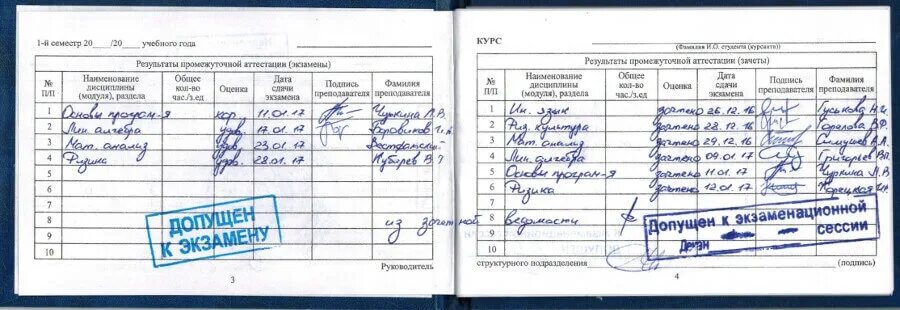 1-й семестр 20____/20____ учебного года
Результаты промежуточной аттестации (экзамены)
№ П/П Наименование дисциплины (модуля), раздела Общее кол-во час./з.ед Оценка Дата сдачи экзамена Подпись преподавателя Фамилия преподавателя
1 Основы програм-я хор. 11.01.17 Чуркина Л.В.
2 Лин. алгебра удв. 17.01.17 Боровиков
3 Мат. анализ удв. 23.01.17
4 Физика удв. 28.01.17
5
6
7
8 из зачетной
9
10
ДОПУЩЕН
К ЭКЗАМЕНУ
Руководитель
3
КУРС
(Фамилия И.О. студента (курсанта))
Результаты промежуточной аттестации (зачеты)
№ П/П Наименование дисциплины (модуля), раздела Общее кол-во час./з.ед Оценка Дата сдачи экзамена Подпись преподавателя Фамилия преподавателя
1 Ин. язык зачтено 26.12.16 Гуськова Н.И.
2 Физ. культура зачтено 28.12.16 Горелова В.Ф.
3 Мат. анализ зачтено 29.12.16
4 Лин. алгебра зачтено 09.01.17 Григорьев
5 Основы програм-я зачтено 11.01.17 Чуркина Л.В.
6 Физика зачтено 12.01.17 Корецкая
7
8 ведомости
9
10
Допущен к экзаменационной
сессии
Декан
структурного подразделения (подпись)
4